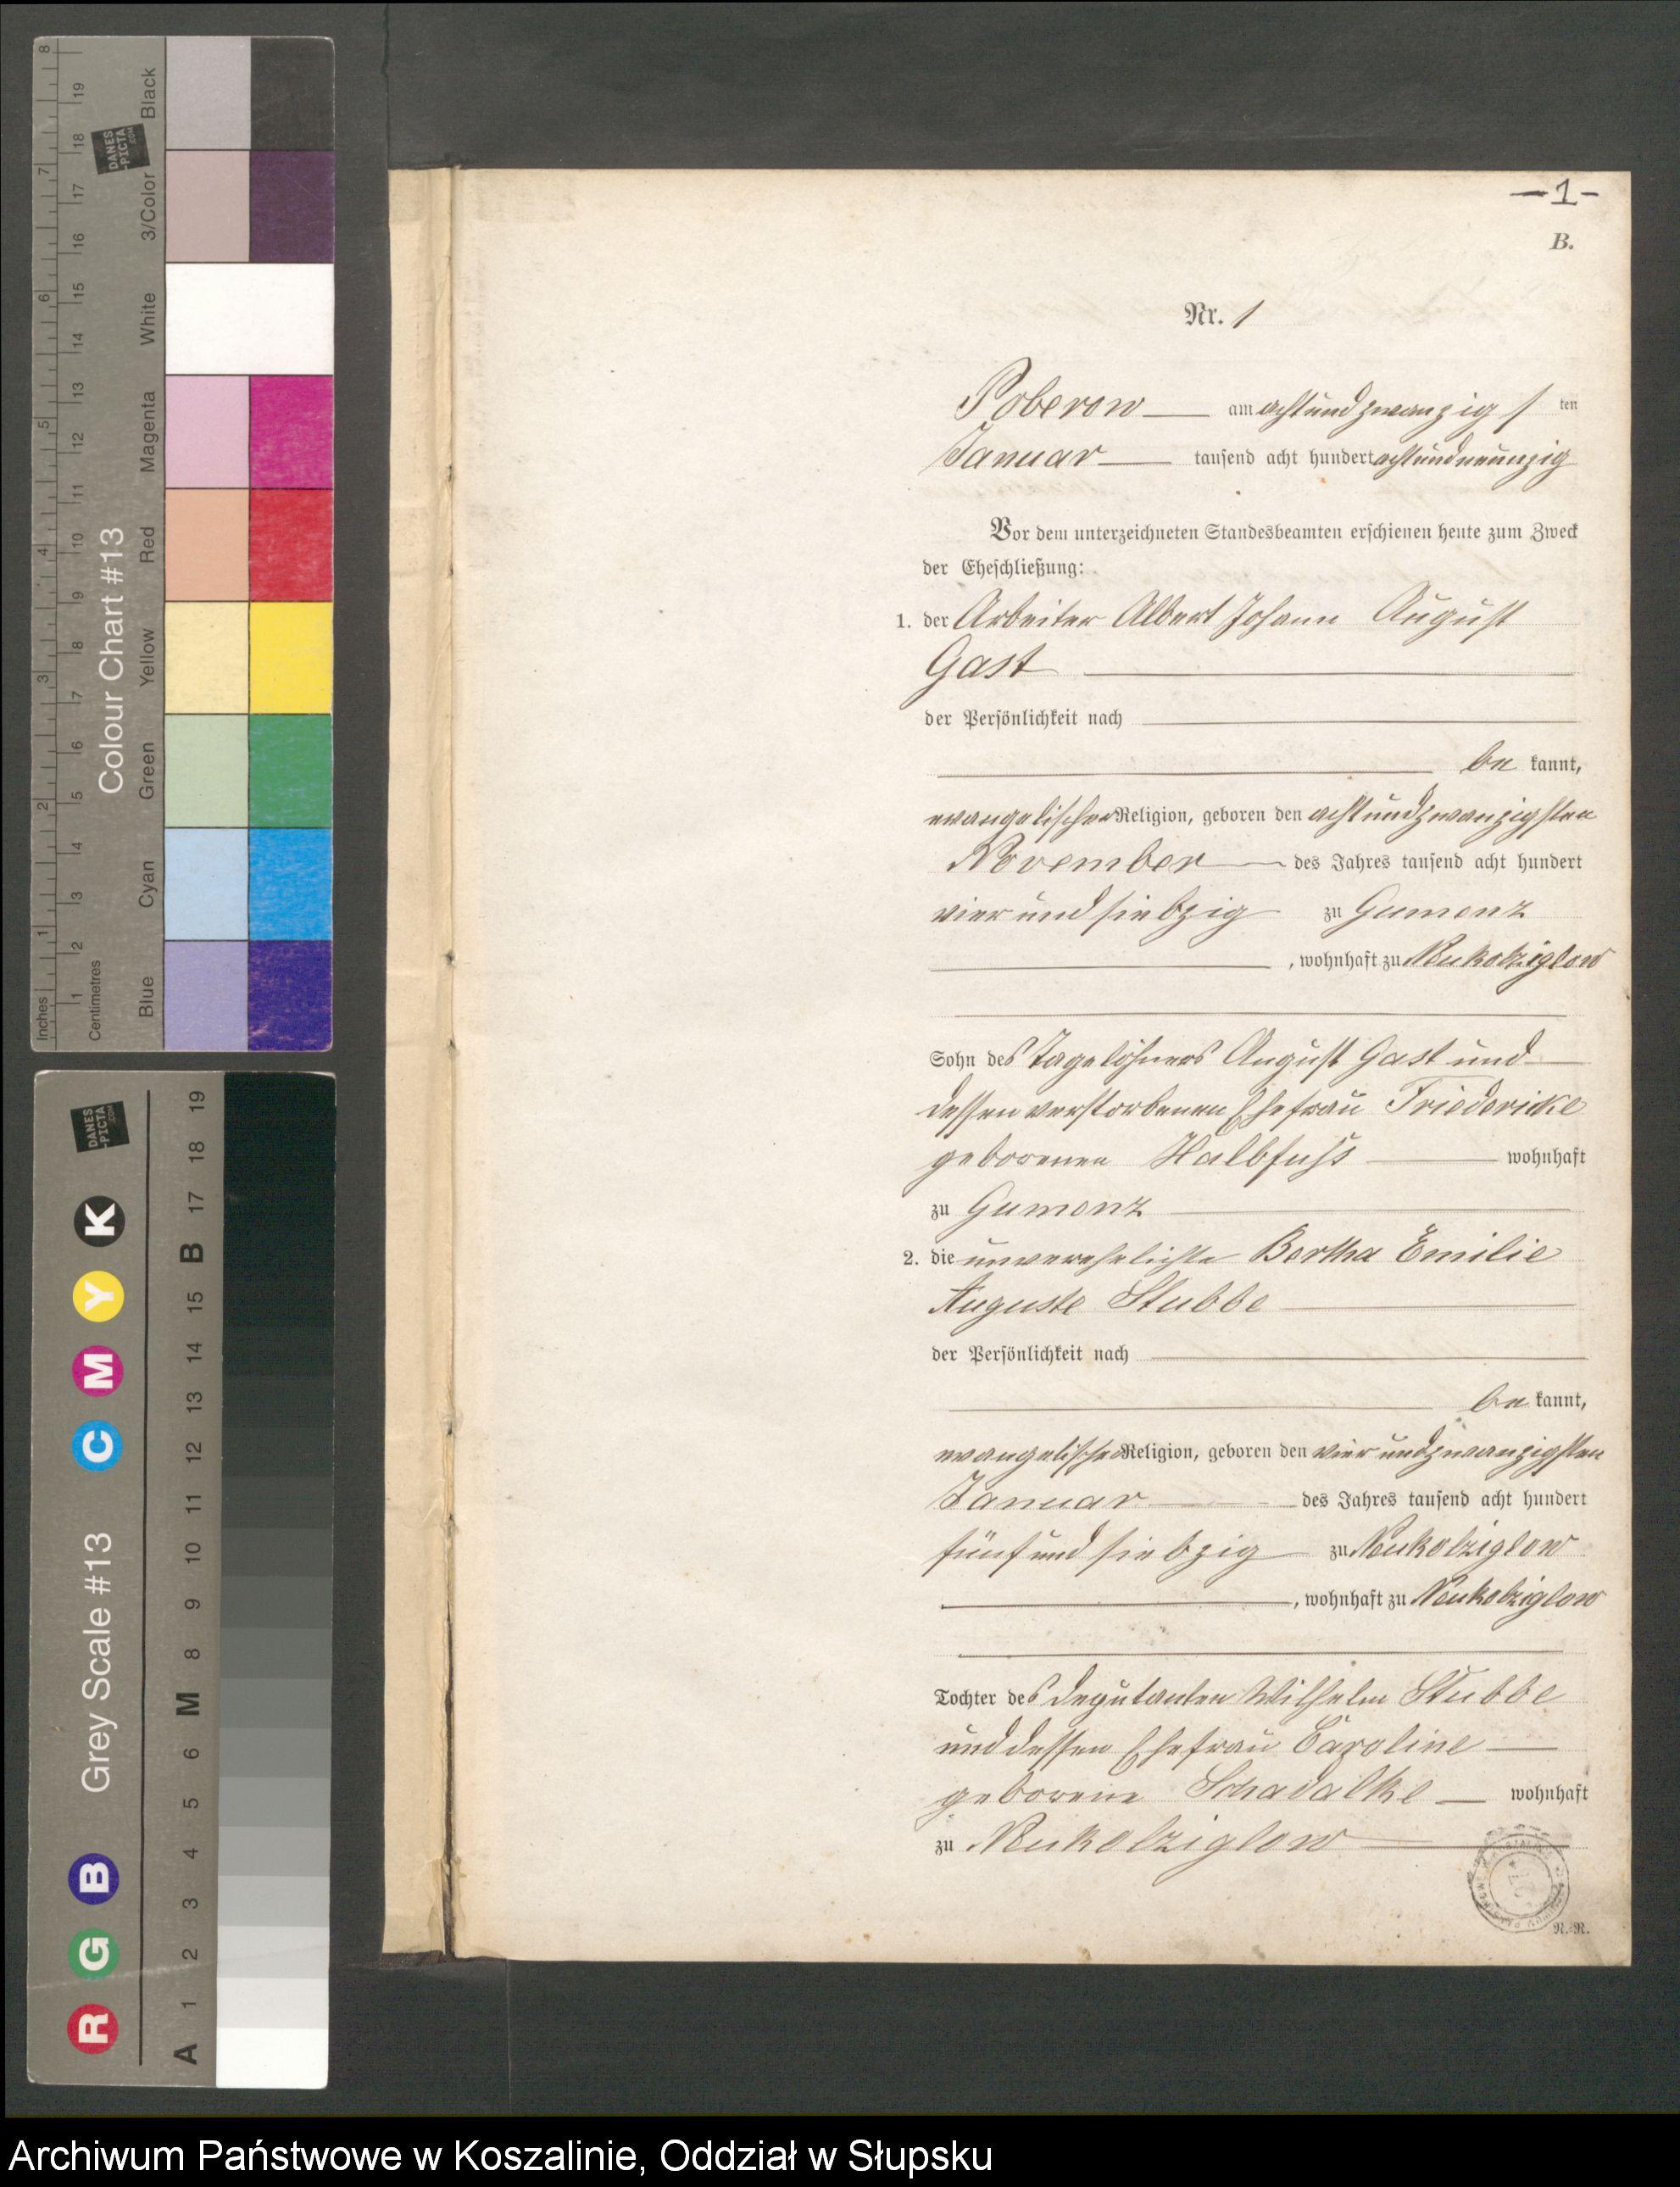 8
7
6
5
4
3
2
1
Inches
19
18
17
16
15
14
13
12
11
10
9
8
7
6
5
4
3
2
1
Centimetres
Colour Chart #13
DANES
-PICTA
.COM
Black
3/Color
White
Magenta
Red
Yellow
Green
Cyan
Blue
DANES
-PICTA
.COM
K
Y
M
C
B
G
R
Grey Scale #13
19
18
17
B
15
14
13
12
11
10
9
8
M
6
5
4
3
2
1
A
—1—
B.
Nr. 1
Poberow — am achtundzwanzigs ten
Januar — tausend acht hundert achtundneunzig
Vor dem unterzeichneten Standesbeamten erschienen heute zum Zweck
der Eheschließung:
1. der Arbeiter Albert Johann August
Gast
der Persönlichkeit nach
be kannt,
evangelischer Religion, geboren den achtundzwanzigsten
November — des Jahres tausend acht hundert
vierundsiebzig zu Gumenz
, wohnhaft zu Neukolziglow
Sohn des Tagelöhners August Gast und
dessen verstorbenen Ehefrau Friedericke
geborenen Halbfuss — wohnhaft
zu Gumenz
2. die unverehelichte Bertha Emilie
Auguste Stubbe
der Persönlichkeit nach
be kannt,
evangelischer Religion, geboren den vierundzwanzigsten
Januar — des Jahres tausend acht hundert
fünfundsiebzig zu Neukolziglow
, wohnhaft zu Neukolziglow
Tochter des Deputanten Wilhelm Stubbe
und dessen Ehefrau Caroline —
geborene Schadalke — wohnhaft
zu Neukolziglow
N.-R.
Archiwum Państwowe w Koszalinie, Oddział w Słupsku